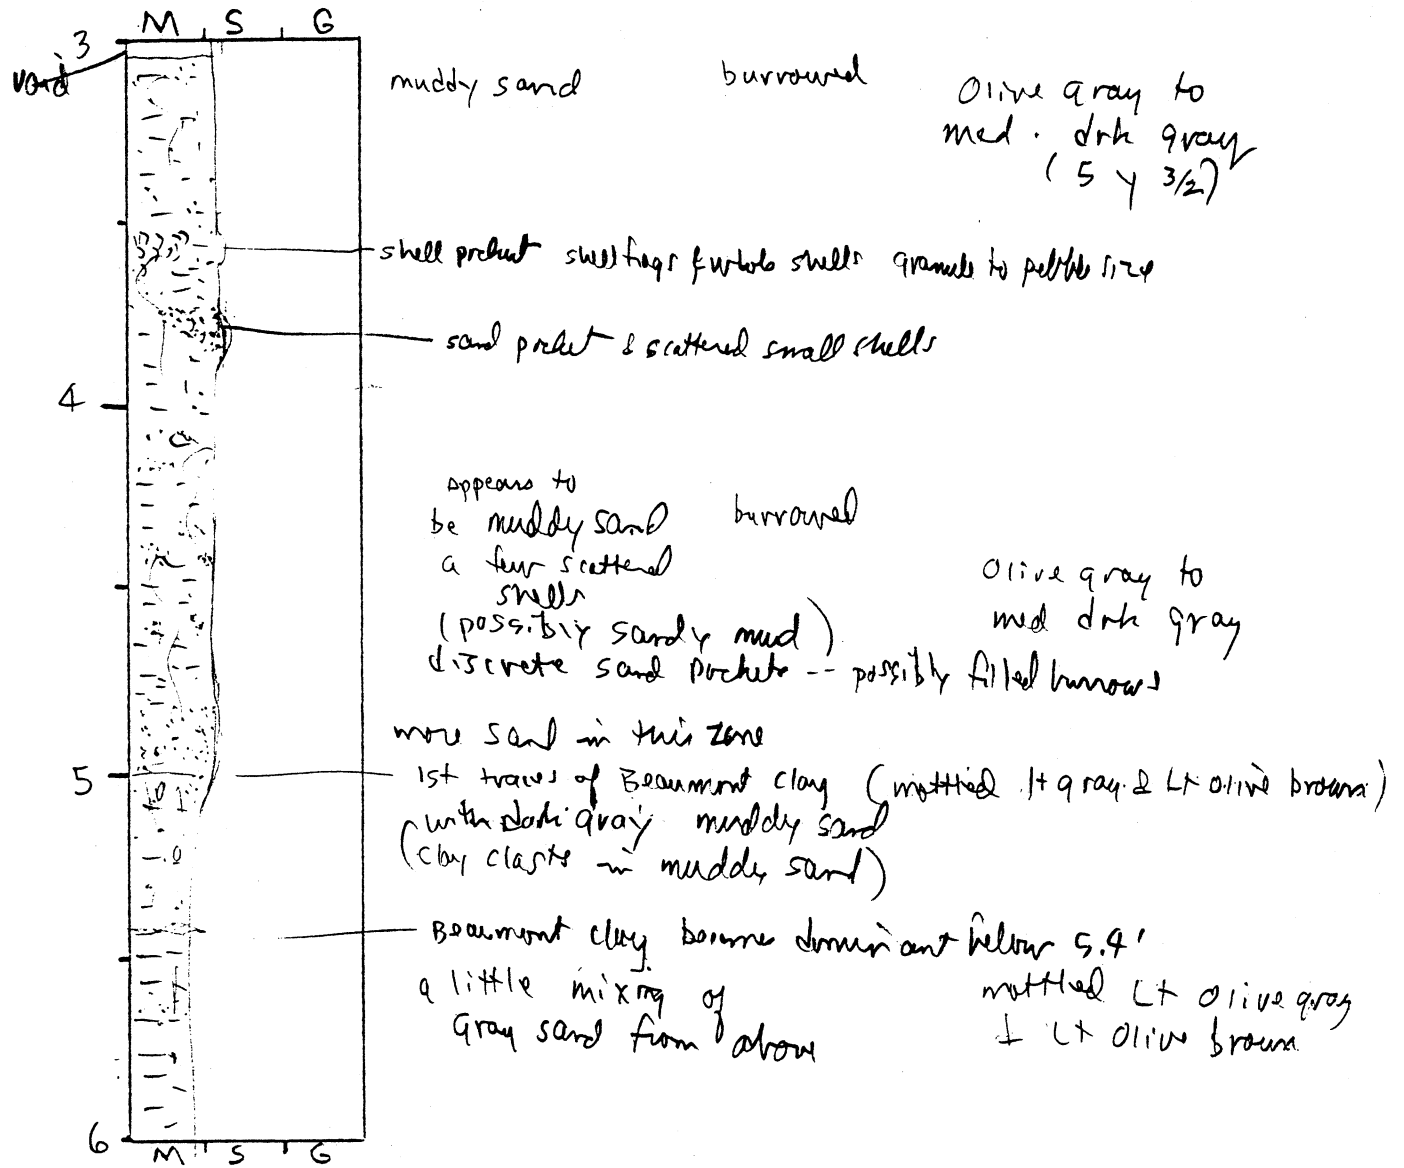 M S G
3
void
muddy sand burrowed Olive gray to
med. drk gray
(5 y 3/2)
shell pocket shell frags & whole shells granule to pebble size
sand pocket & scattered small shells
4
appears to
be muddy sand burrowed
a few scattered
shells
(possibly sandy mud)
Olive gray to
med drk gray
discrete sand pockets -- possibly filled burrows
more sand in this zone
5
1st traces of Beaumont clay (mottled lt gray & Lt olive brown)
with dark gray muddy sand
(clay clasts in muddy sand)
Beaumont clay becomes dominant below 5.4'
a little mixing of
gray sand from above
mottled Lt olive gray
& Lt olive brown
6
M S G